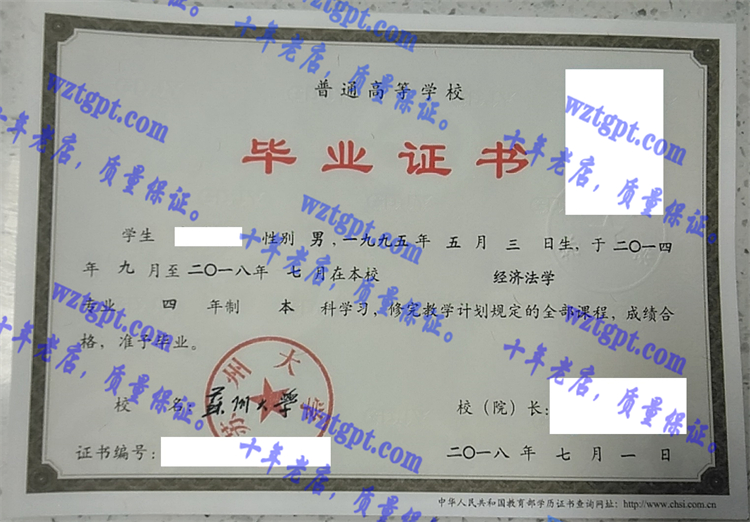 普通高等学校
毕业证书
学生 性别 男，一九九五年 五 月 三 日生，于二〇一四
年 九 月至二〇一八年 七 月在本校 经济法学
专业 四 年制 本 科学习，修完教学计划规定的全部课程，成绩合
格，准予毕业。
苏州大学
校 名：蘇州大學 校（院）长：
证书编号： 二〇一八 年 七 月 一 日
中华人民共和国教育部学历证书查询网址：http://www.chsi.com.cn
wztgpt.com
十年老店，质量保证。
wztgpt.com
十年老店，质量保证。
wztgpt.com
十年老店，质量保证。
wztgpt.com
十年老店，质量保证。
wztgpt.com
十年老店，质量保证。
wztgpt.com
十年老店，质量保证。
wztgpt.com
十年老店，质量保证。